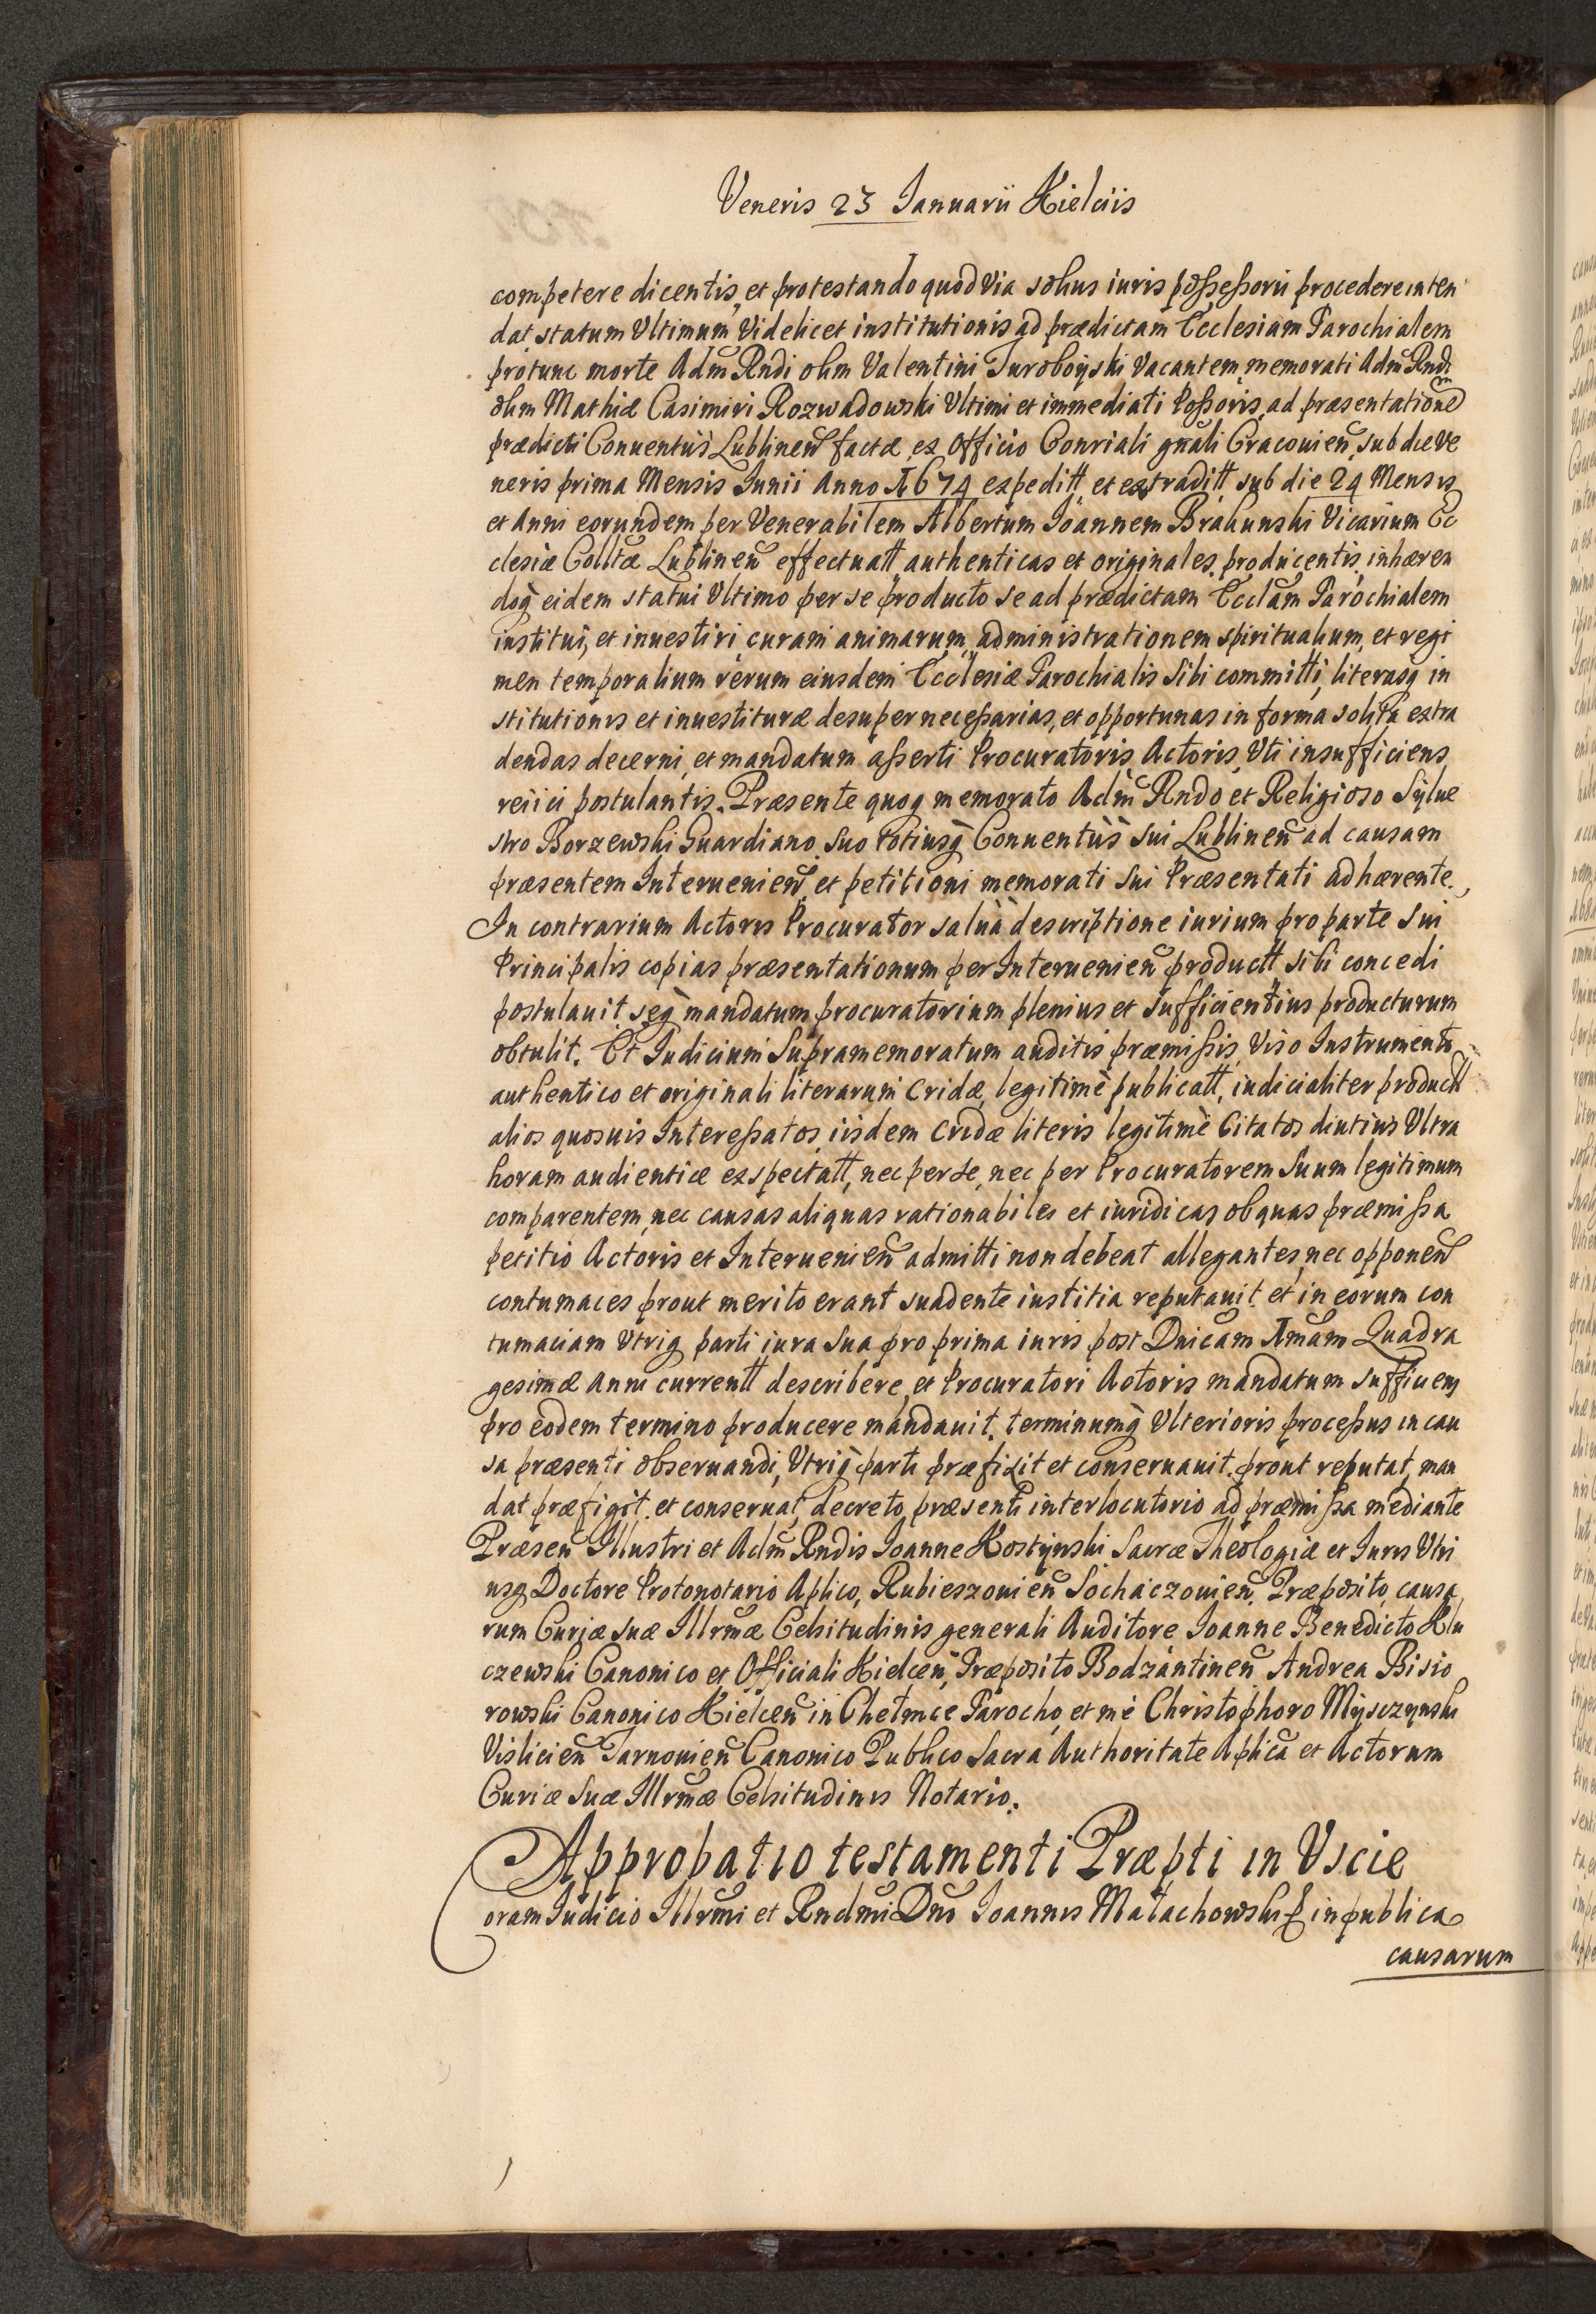 Veneris 23 Januarii Kielciis
competere dicentis, et protestando quod via solius iuris possessorii procedere inten
dat statum Ultimum Videlicet institutionis ad prædictam Ecclesiam Parochialem
protunc morte Adm̃ Rndi olim Valentini Turoboyski Vacantem memorati Adm̃ Rndi
olim Mathiæ Casimiri Rozwadowski Ultimi et immediati Possoris, ad præsentatione͂
prædicti Conventus Lublineñ factæ, ex Officio Consriali gnãli Cracovieñ, sub die Ve
neris prima Mensis Junii Anno 1674 expeditt et extraditt sub die 24 Mensis
et Anni eorundem per Venerabilem Albertum Joannem Brahunski Vicarium Ec
clesiæ Colltæ Lublineñ effectuatt authenticas et originales producentis, inhæren
doq̀ eidem statui Ultimo per se producto se ad prædictam Ecclãm Parochialem
institui, et investiri, curam animarum, administrationem spiritualium, et regi
men temporalium rerum eiusdem Ecclesiæ Parochialis Sibi committi, literasq̀ in
stitutionis et investituræ desuper necessarias, et opportunas in forma solita extra
dendas decerni, et mandatum asserti Procuratoris Actoris, Uti insufficiens
reiici postulantis. Præsente quoq̀ memorato Adm̃ Rndo et Religioso Sylve
stro Borzewski Guardiano Suo totiusq̀ Conventus sui Lublineñ ad causam
præsentem Intervenieñ, et petitioni memorati Sui Præsentati adhærente.,
In contrarium Actoris Procurator salvà descriptione iurium pro parte Sui
Principalis copias præsentationum per Intervenieñ productt sibi concedi
postulavit, seq̀ mandatum procuratorium plenius et sufficientius producturum
obtulit. Et Judicium Supramemoratum auditis præmissis, Viso Instrumento
authentico et originali literarum Cridæ, legitimè publicatt, iudicialiter productt
alios quosvis Interessatos iisdem Cridæ literis legitimè Citatos diutius Ultra
horam audientiæ exspectatt, nec per se, nec per Procuratorem Suum legitimum
comparentem, nec causas aliquas rationabiles et iuridicas ob quas præmissa
petitio Actoris et Intervenieñ admitti non debeat allegantes, nec opponeñ
contumaces prout merito erant suadente iustitia reputavit, et in eorum con
tumaciam Utriq̀ parti iura Sua pro prima iuris post Dnicam 1mam Quadra
gesimæ Anni currentt describere, et Procuratori Actoris mandatum sufficiens
pro eodem termino producere mandavit, terminumq̀ Ulterioris processus in cau
sa præsenti observandi, Utriq̀ parti præfixit et conservavit. prout reputat, man
dat præfigit. et conservat, decreto præsenti interlocutorio ad præmissa mediante
Præseñ Illustri et Adm̃ Rndis Joanne Kostynski Sacræ Theologiæ et Juris Utri
usq̀ Doctore Protonotario Aplico, Rubieszovieñ Sochaczovieñ. Præposito, causa
rum Curiæ suæ Illrmæ Celsitudinis generali Auditore Joanne Benedicto Klu
czewski Canonico et Officiali Kielceñ, Præposito Bodzantineñ Andrea Bisio
rowski Canonico Kielceñ in Chełmce Parocho, et me Christophoro Mysczynski
Visliciеñ Tarnovieñ Canonico Publico Sacra Authoritate Aplica et Actorum
Curiæ Suæ Illrmæ Celsitudinis Notario.
Approbatio testamenti Præpti in Uscie
Coram Judicio Illrmi et Rndmi Dni Joannis Małachowski E in publica
causarum